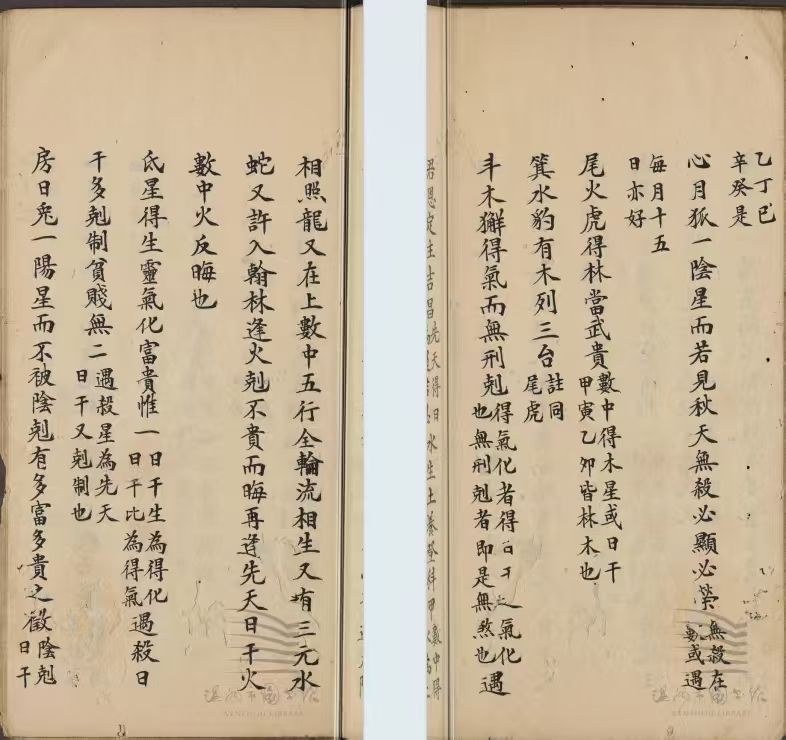 乙丁巳
辛癸是
心月狐一陰星而若見秋天無殺必顯必榮無殺在
數或遇
每月十五
日亦好
尾火虎得林當武貴數中得木星或日干
甲寅乙夘皆林木也
箕水豹有木列三台註同
尾虎
斗木獬得氣而無刑剋得氣化者得日干之氣化
也無刑剋者即是無煞也遇
相照龍又在上數中五行全輪流相生又有三元水
蛇又許入翰林逢火剋不貴而晦再逢先天日干火
數中火反晦也
氐星得生靈氣化富貴惟一日干生為得化
日干比為得氣遇殺日
干多剋制貧賤無二遇殺星為先天
日干又剋制也
房日兔一陽星而不被陰剋有多富多貴之徵陰剋
日干